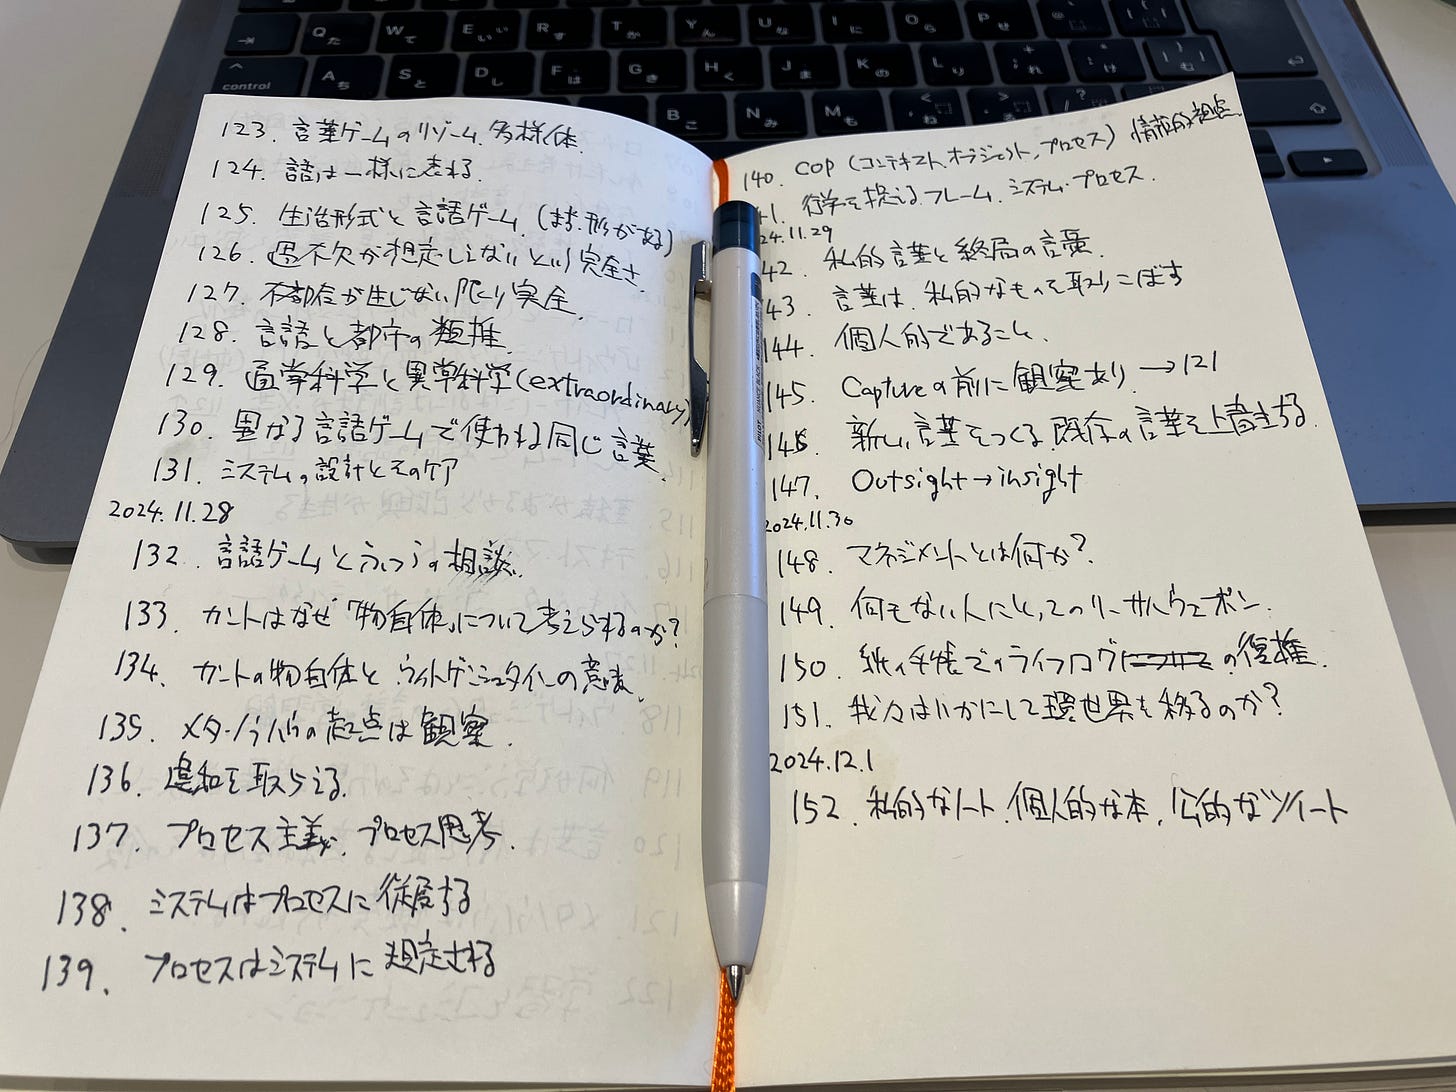 123. 言葉ゲームのリゾーム、多様体
124. 語は一様に忘れる.
125. 生活形式と言語ゲーム. (はち形がある)
126. 過不欠が想定しえないという完全さ.
127. 不都合が生じない限り完全.
128. 言語と都市の類推.
129. 通常科学と異常科学(extraordinary)
130. 異なる言語ゲームで使われる同じ言葉.
131. システムの設計とそのケア
2024.11.28
132. 言語ゲームとふつうの相談.
133. カントはなぜ「物自体」について考えられるのか?
134. カントの物自体とウィトゲンシュタインの意志.
135. メタ・ノウハウの起点は観察.
136. 違和を取らえる.
137. プロセス主義、プロセス思考.
138. システムはプロセスに従属する
139. プロセスはシステムに規定される
140. COP (コンテキスト、オブジェクト、プロセス) 情報的視点.
41. 行学を捉えるフレーム. システム・プロセス.
24.11.29
42. 私的言葉と終局の語彙.
43. 言葉は、私的なものを取りこぼす
44. 個人的であること.
145. Captureの前に観察あり. →121
146. 新しい言葉をつくる. 既存の言葉を上書きする.
147. Outsight→insight
2024.11.30
148. マネジメントとは何か?
149. 何もない人にとってのリーサルウェポン.
150. 紙の手帳でのライフログの復権.
151. 我々はいかにして環世界を移るのか?
2024.12.1
152. 私的なノート. 個人的な本. 公的なツイート